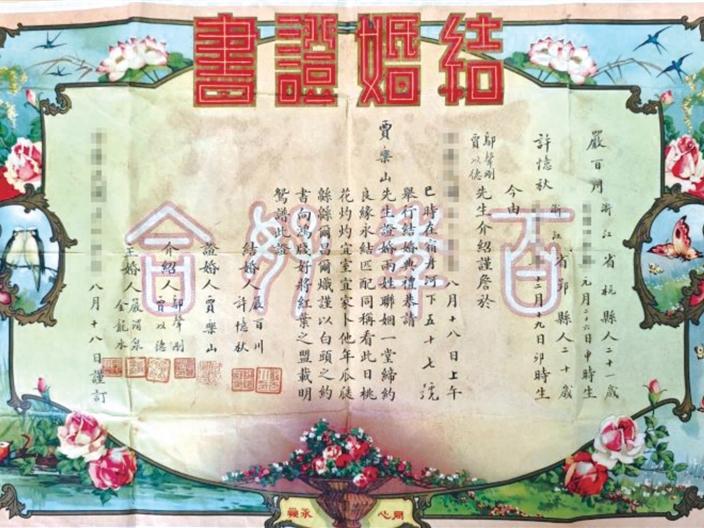 結婚證書
嚴百川 浙江省杭縣人二十一歲
元月二十六日申時生
許憶秋 浙江省鄞縣人二十歲
二月十九日卯時生
今由
鄔聲剛
賈以德
先生介紹謹詹於
八月十八日上午
巳時在宿舟河下五十七號
舉行結婚典禮恭請
賈樂山先生證婚兩姓聯姻一堂締約
良緣永結匹配同稱看此日桃
花灼灼宜室宜家卜他年瓜瓞
緜緜爾昌爾熾謹以白頭之約
書向鴻箋好將紅葉之盟載明
鴛譜此證
結婚人 嚴百川
許憶秋
證婚人 賈樂山
介紹人 鄔聲剛
賈以德
主婚人 嚴泉
金水
八月十八日謹訂
百年好合
同心永